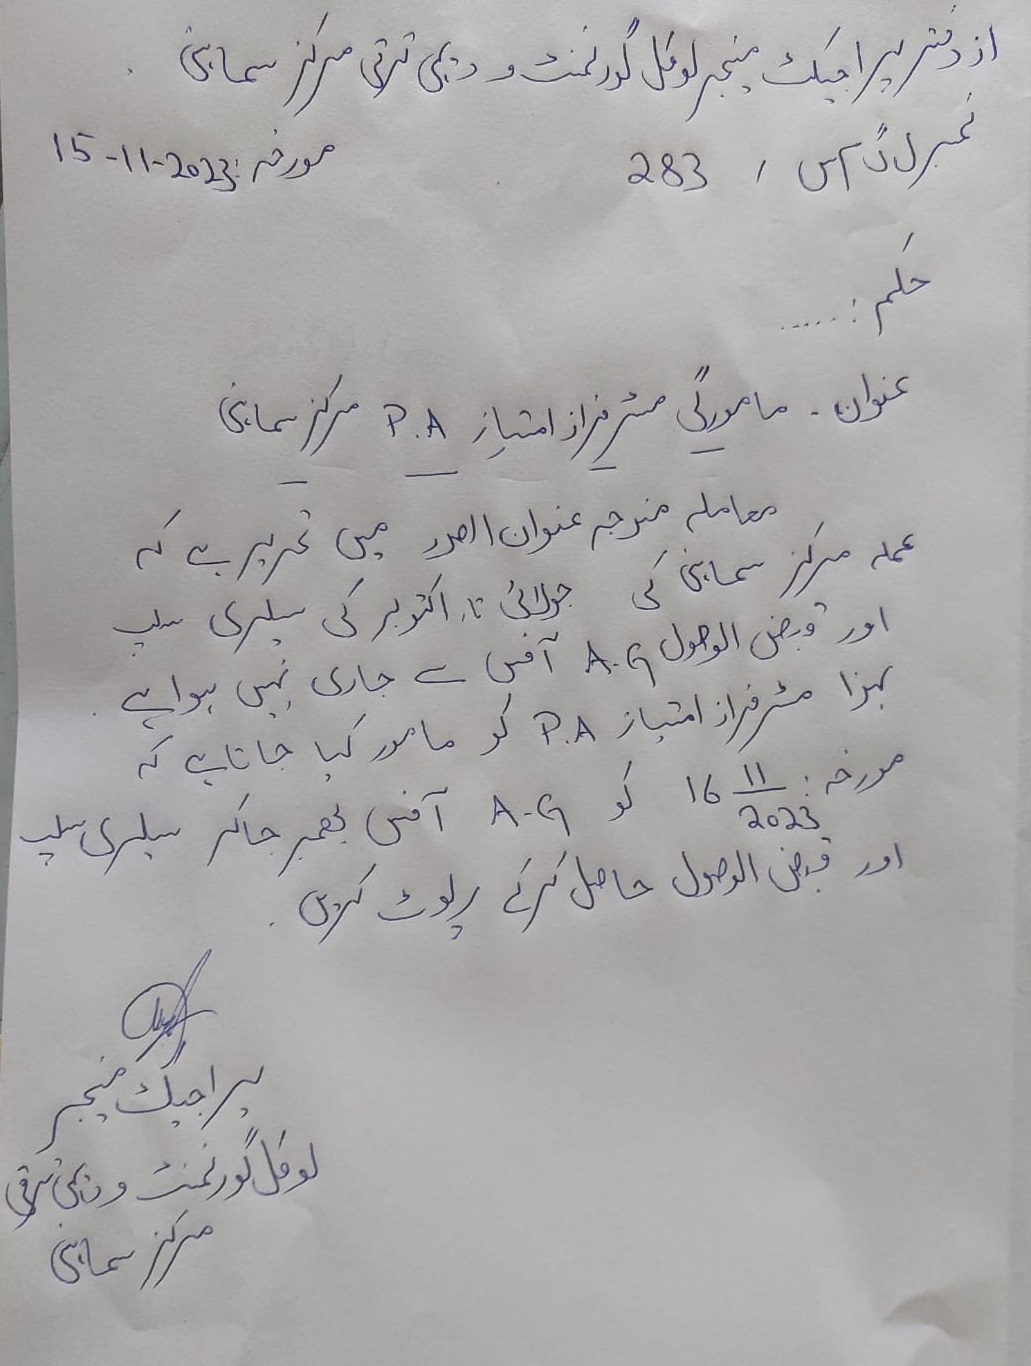 از دفتر پراجیکٹ منیجر لوکل گورنمنٹ و دیہی ترقی مرکز سماہنی
نمبر ل گ / س / 283 مورخہ: 15-11-2023
حکم : .....
عنوان - مامورگی مسٹر فراز امتیاز P.A مرکز سماہنی
معاملہ مندرجہ عنوان الصدر میں تحریر ہے کہ
عملہ مرکز سماہنی کی جولائی تا اکتوبر کی سیلری سلپ
اور قبض الوصول A.G آفس سے جاری نہیں ہوا ہے .
لہذا مسٹر فراز امتیاز P.A کو مامور کیا جاتا ہے کہ
مورخہ : 16 11/2023 کو A.G آفس بھمبر جا کر سیلری سلپ
اور قبض الوصول حاصل کر کے رپوٹ کریں .
پراجیکٹ منیجر
لوکل گورنمنٹ و دیہی ترقی
مرکز سماہنی